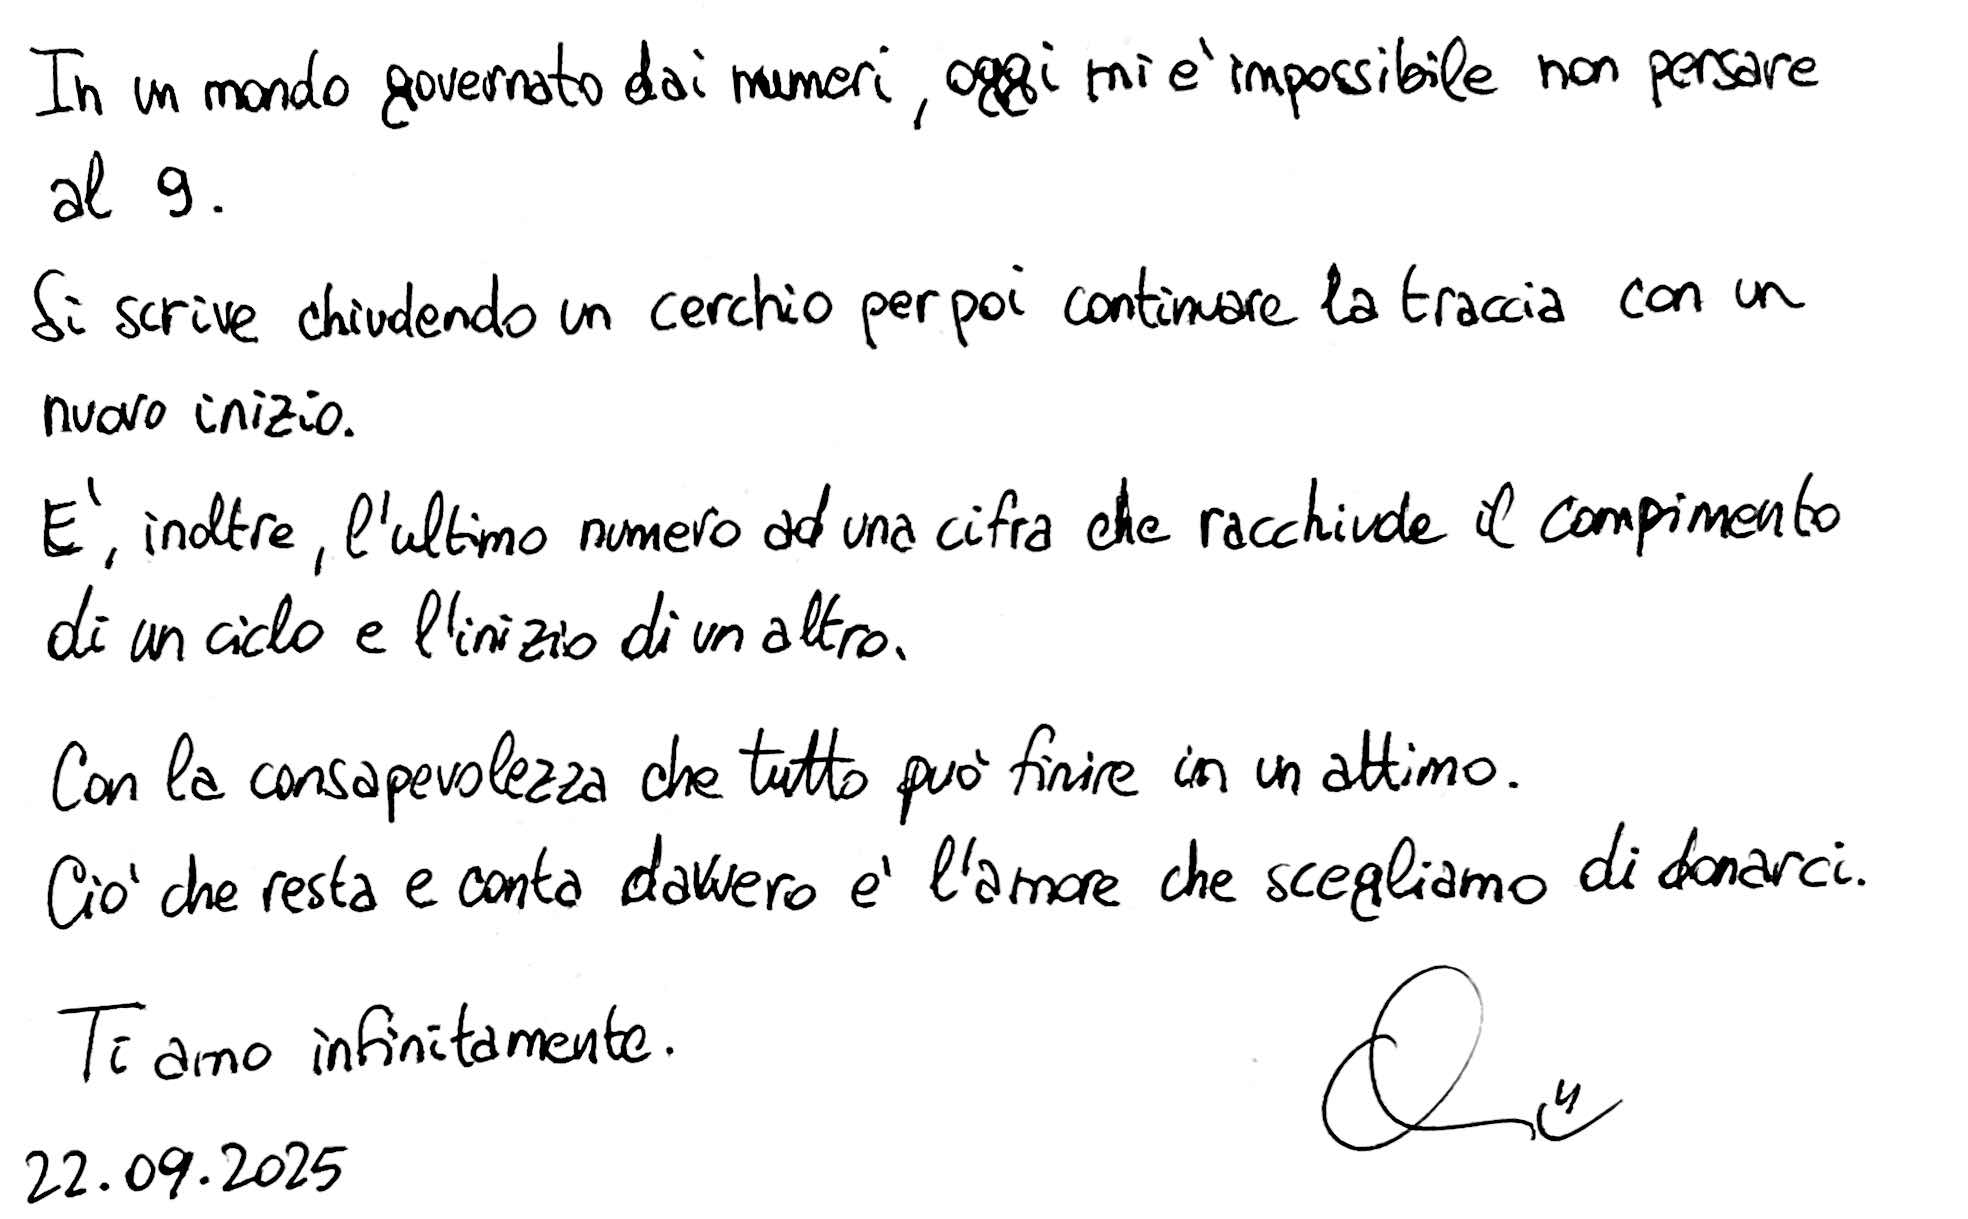 In un mondo governato dai numeri, oggi mi e' impossibile non pensare
al 9.
Si scrive chiudendo un cerchio per poi continuare la traccia con un
nuovo inizio.
E', inoltre, l'ultimo numero ad una cifra che racchiude il compimento
di un ciclo e l'inizio di un altro.
Con la consapevolezza che tutto può finire in un attimo.
Ciò che resta e conta davvero e' l'amore che scegliamo di donarci.
Ti amo infinitamente.
22.09.2025